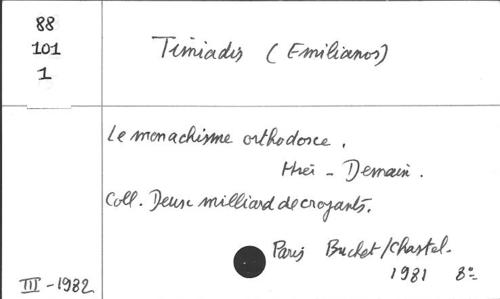 88
101
1
Timiadis (Emilianos)
Le monachisme orthodoxe.
Hier - Demain.
Coll. Deux milliard de croyants.
Paris Buchet/Chastel.
1981 8º
III - 1982